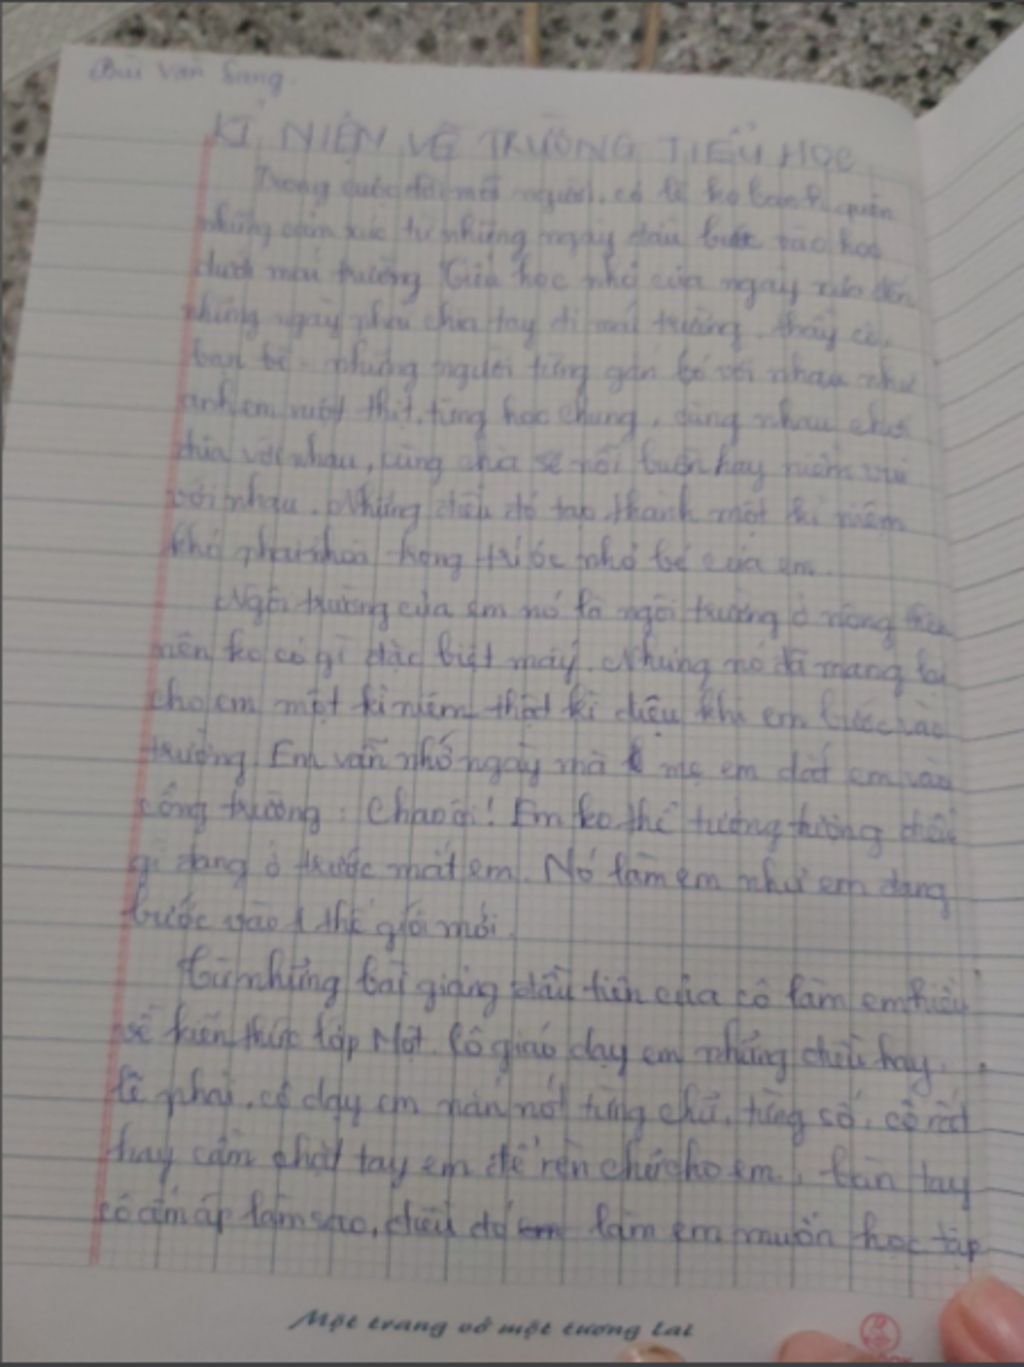 Bùi Văn Sang
KỈ NIỆM VỀ TRƯỜNG TIỂU HỌC
Trong cuộc đời mỗi người, có lẽ ko bao h quên
những cảm xúc từ những ngày đầu bước vào học
dưới mái trường Tiểu học nhỏ của ngày nào đến
những ngày phải chia tay đi mái trường, thầy cô,
bạn bè - những người từng gắn bó với nhau như
anh em ruột thịt, từng học chung, cùng nhau chơi
đùa với nhau, cùng chia sẻ nỗi buồn hay niềm vui
với nhau. Những điều đó tạo thành một kỉ niệm
khó phai nhoà trong trí óc nhỏ bé của em.
Ngôi trường của em nó là ngôi trường ở nông thôn
nên ko có gì đặc biệt mấy. Nhưng nó đã mang lại
cho em một kỉ niệm thật kì diệu khi em bước vào
trường. Em vẫn nhớ ngày mà mẹ em dắt em vào
cổng trường: Chao ôi! Em ko thể tưởng tượng điều
gì đang ở trước mắt em. Nó làm em như em đang
bước vào 1 thế giới mới.
Từ những bài giảng đầu tiên của cô làm em hiểu
về kiến thức lớp Một. Cô giáo dạy em những điều hay
lẽ phải, cô dạy em nắn nót từng chữ, từng số, cô rất
hay cầm chặt tay em để rèn chữ cho em, bàn tay
cô ấm áp làm sao, điều đó làm em muốn học tập
Một trang vở một tương lai